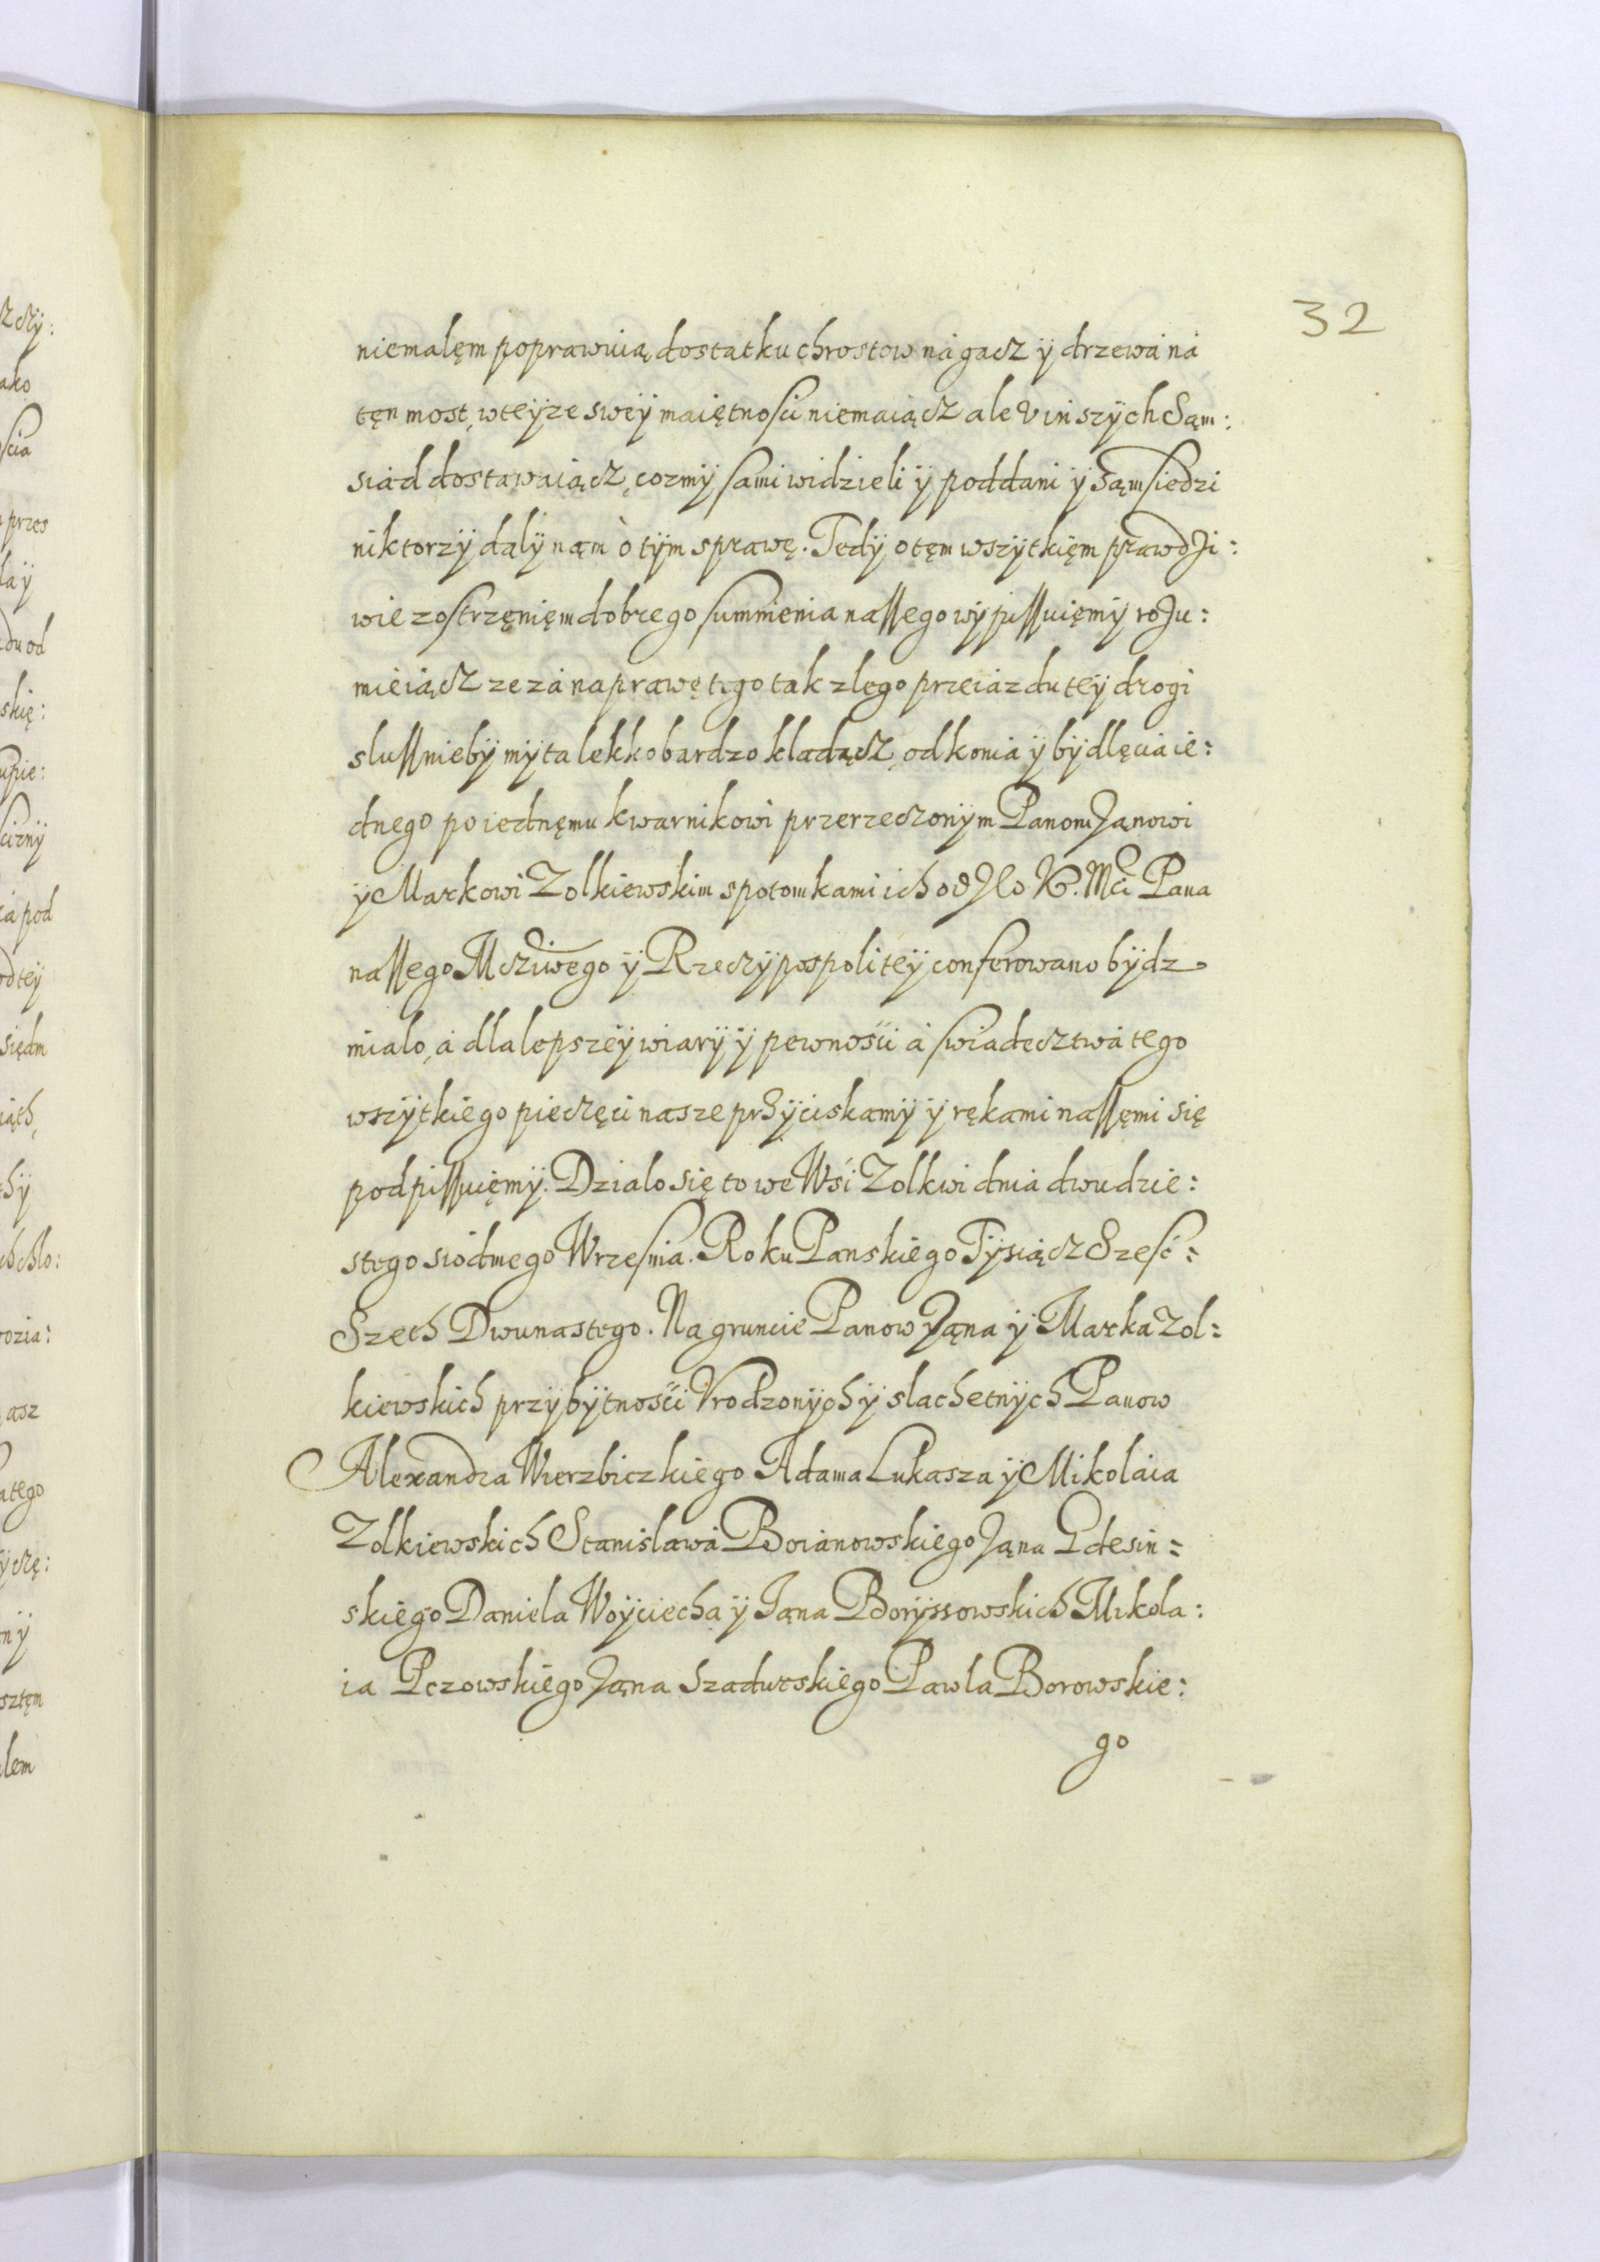 32
niemalęm poprawuią dostatku chrostow nágacz ÿ drzewá ná
tęn most, wteÿze sweÿ maiętnosci niemaiącz ale v inszÿch Sąm:
siád dostawaiącz, cozmÿ sami widzieli ÿ poddani ÿ Sąmsiedzi
niktorzÿ dalÿ nąm ò tÿm sprawę. Tedÿ o tęm wszÿtkięm prawdzi:
wie z ostrzęnięm dobrego sumnienia nassego wÿpissuięmÿ rozu:
mieiącz ze zá naprawę tego tak zlego przeiázdu teÿ drogi
slussnie bÿ mÿta lekko bardzo kladącz, od konia ÿ bÿdlęcia ie:
dnego po iednęmu kwarnikowi przerzeczonÿm Panom Janowi
ÿ Markowi Zolkiewskim spotomkami ich od Je K. Mci Pana
nassego Mcziwego ÿ Rzeczÿpospoliteÿ conferowano bÿdz
mialo, á dla lepszeÿ wiarÿ ÿ pewnosci á swiadecztwá tego
wszÿtkiego pieczęci nasze przÿciskamÿ ÿ rękami nassęmi się
podpissuięmÿ. Dzialo się to we Wsi Zolkwi dniá dwudzie:
stego siodmego Wrzesnia. Roku Panskiego Tÿsiącz Szesc:
Szech Dwunastego. Na gruncie Panow Jąna ÿ Marka Zol:
kiewskich przÿ bÿtnosci Vrodzonÿch ÿ slachetnÿch Panow
Alexandra Wierzbiczkiego Adama Lukasza ÿ Mikolaia
Zolkiewskich Stanislawá Boianowskiego Jąna Gdesin:
skiego Daniela Woÿciecha ÿ Jąna Borÿssowskich Mikola:
ia Pczowskiego Jąna Szadurskiego Pawla Borowskie:
go